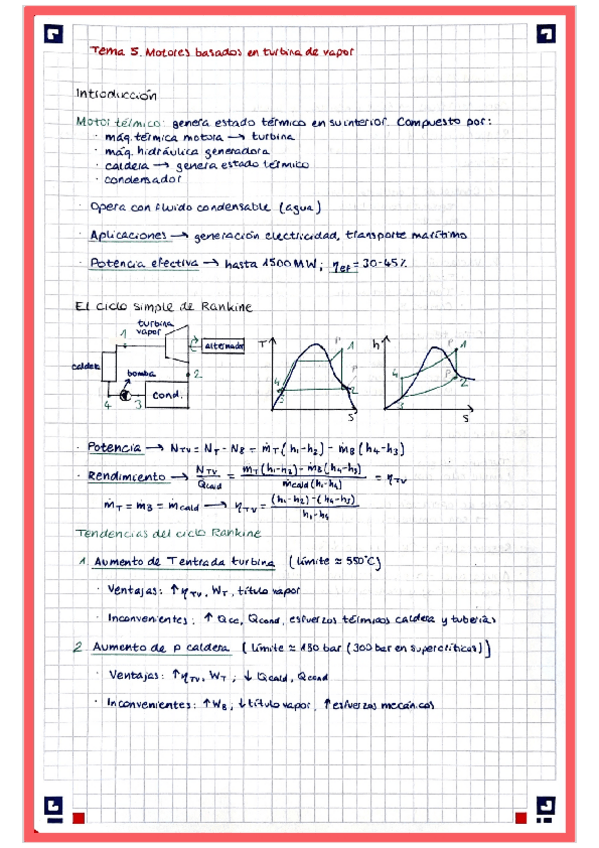 Tema 5. Motores basados en turbina de vapor
Introducción
Motor térmico: genera estado térmico en su interior. Compuesto por:
· máq. térmica motora → turbina
· máq. hidráulica generadora
· caldera → genera estado térmico
· condensador
· Opera con fluido condensable (agua)
· Aplicaciones → generación electricidad, transporte marítimo
· Potencia efectiva → hasta 1500 MW; ηef = 30-45%
El ciclo simple de Rankine
turbina
vapor
1
alternador
caldera
bomba
2
cond.
4 3
T P 1 P 4 3 2 S
h P 1 4 P 2 3 S
· Potencia → NTV = NT - NB = ṁT (h1-h2) - ṁB (h4-h3)
· Rendimiento → NTV / Qcald = ṁT (h1-h2) - ṁB (h4-h3) / ṁcald (h1-h4) = ηTV
ṁT = ṁB = ṁcald → ηTV = (h1-h2)-(h4-h3) / h1-h4
Tendencias del ciclo Rankine
1. Aumento de T entrada turbina (límite ≈ 550°C)
· Ventajas: ↑ηTV, WT, título vapor
· Inconvenientes: ↑ Qcc, Qcond, esfuerzos térmicos caldera y tuberías
2. Aumento de p caldera (límite ≈ 180 bar (300 bar en supercríticas))
· Ventajas: ↑ηTV, WT; ↓ Qcald, Qcond
· Inconvenientes: ↑WB; ↓título vapor, ↑esfuerzos mecánicos